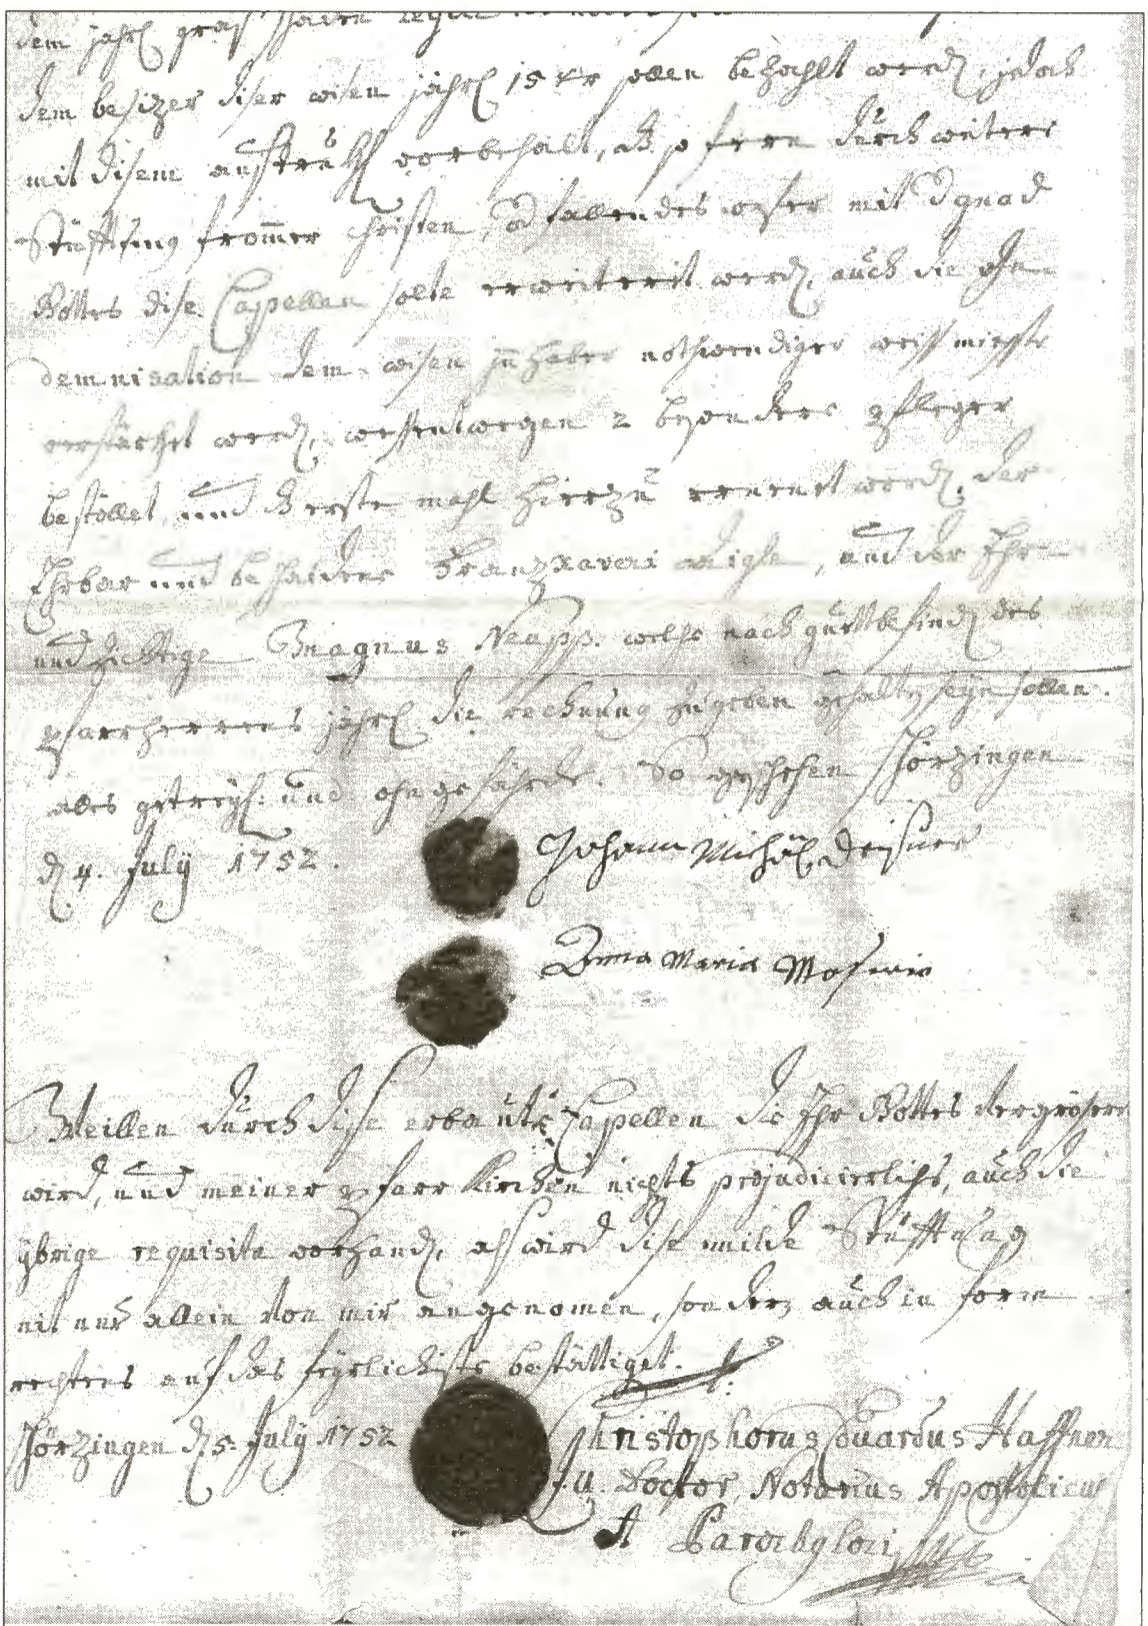 dem jehrl.
dem besizer diser wisen jährl 15 kr sollen bezahlt werd, jedoch
mit disem austrükl vorbehalt, dß so fern durch weitere
Stüfftung frommer Christen, od fallendes opfer mit d gnad
Gottes dise Capellen solte erweiterit werd, auch die in
demnisation dem wisen jnhaber nothwendiger weiss mieste
werd, wessentwegen 2 besondere pfleger
bestöllet und dß erste mahl hierzu ernenet word. der
Ehrbar und bescheidene Franz Xaveri, und der Ehr
und Magnus Neapp. welche nach guettbefind des
pfarrherrens jährl die rechnung zu geben gehalt seyn sollen.
alles getreyl. und ohngefährde. So geschehen Schörzingen
d 4. July 1752.
Johann Michäel
Anna Maria Moserin
Weillen durch dise erbaute Capellen die Ehr Gottes vergrösert
wird, und meiner pfarr Kirchen nichts præjudicierliches, auch die
ybrige requisita vorhand, als wird dise milde Stüfftung
nit nur allein von mir angenomen, sondern auch in form
rechtens auf das feyrlichiste bestättiget.
Schörzingen d 5. July 1752
Christophorus Eduardus Haffner
J. U. Doctor, Notarius Apostolicus